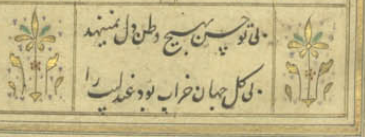 بی تو چمن بهیچ وطن دل نمینهد
بی گل جهان خراب بود عندلیب را